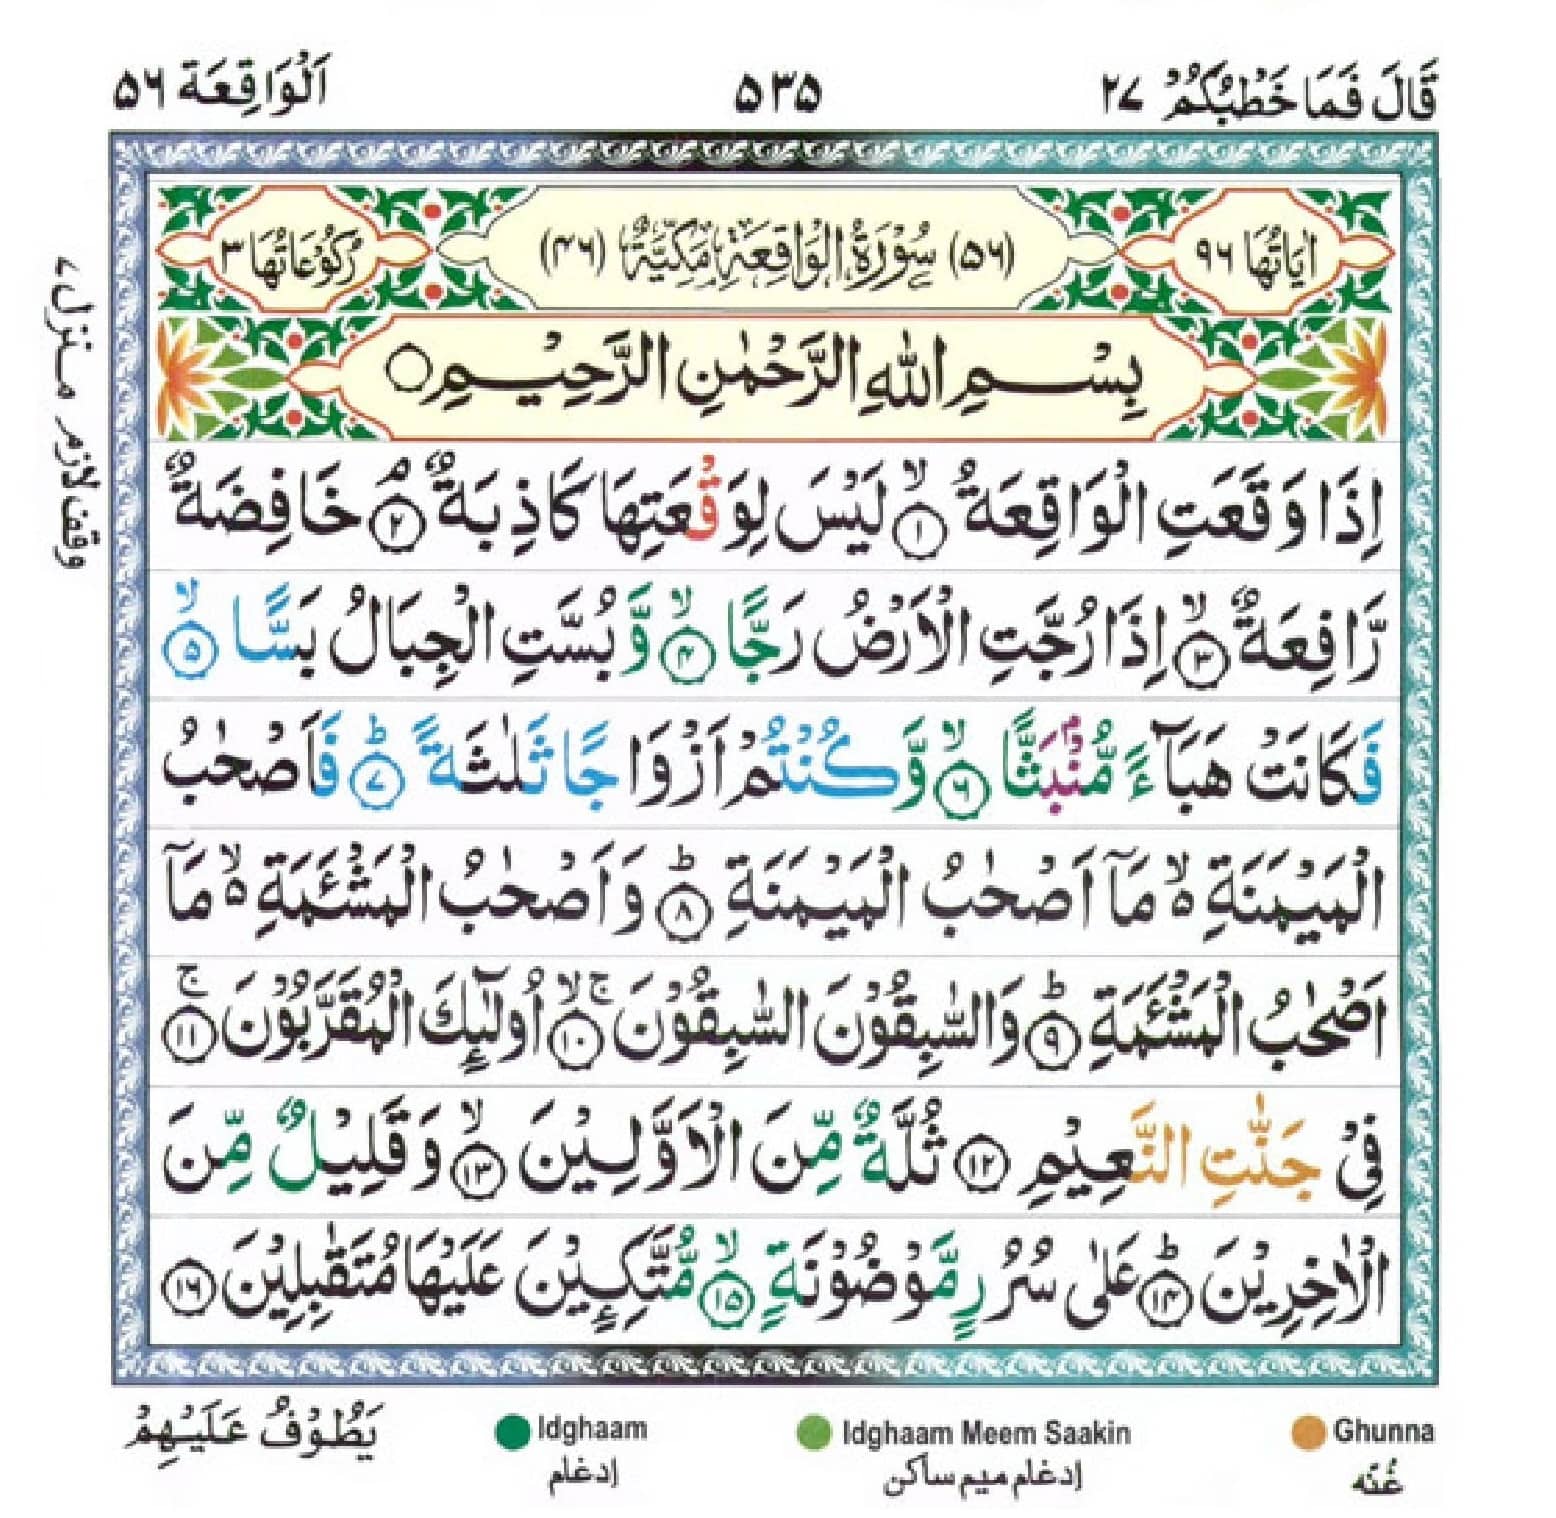 قَالَ فَمَا خَطْبُكُمْ ۲۷
۵۳۵
اَلْوَاقِعَة ۵۶
اٰيَاتُهَا ۹۶
(۵۶) سُوْرَةُ الْوَاقِعَةِ مَكِّيَّةٌ (۴۶)
رُكُوْعَاتُهَا ۳
بِسْمِ اللّٰهِ الرَّحْمٰنِ الرَّحِيْمِ ○
اِذَا وَقَعَتِ الْوَاقِعَةُ ۙ﴿۱﴾ لَيْسَ لِوَقْعَتِهَا كَاذِبَةٌ ۘ﴿۲﴾ خَافِضَةٌ
رَّافِعَةٌ ۙ﴿۳﴾ اِذَا رُجَّتِ الْاَرْضُ رَجًّا ۙ﴿۴﴾ وَّ بُسَّتِ الْجِبَالُ بَسًّا ۙ﴿۵﴾
فَكَانَتْ هَبَآءً مُّنْۢبَثًّا ۙ﴿۶﴾ وَّ كُنْتُمْ اَزْوَاجًا ثَلٰثَةً ؕ﴿۷﴾ فَاَصْحٰبُ
الْمَيْمَنَةِ ۙ۬ مَاۤ اَصْحٰبُ الْمَيْمَنَةِ ؕ﴿۸﴾ وَ اَصْحٰبُ الْمَشْـَٔمَةِ ۙ۬ مَاۤ
اَصْحٰبُ الْمَشْـَٔمَةِ ؕ﴿۹﴾ وَالسّٰبِقُوْنَ السّٰبِقُوْنَ ۚۙ﴿۱۰﴾ اُولٰٓئِكَ الْمُقَرَّبُوْنَ ۚ﴿۱۱﴾
فِيْ جَنّٰتِ النَّعِيْمِ ﴿۱۲﴾ ثُلَّةٌ مِّنَ الْاَوَّلِيْنَ ۙ﴿۱۳﴾ وَ قَلِيْلٌ مِّنَ
الْاٰخِرِيْنَ ؕ﴿۱۴﴾ عَلٰى سُرُرٍ مَّوْضُوْنَةٍ ۙ﴿۱۵﴾ مُّتَّكِـِٕيْنَ عَلَيْهَا مُتَقٰبِلِيْنَ ﴿۱۶﴾
وقف لازم
منزل ۷
يَطُوْفُ عَلَيْهِمْ
Idghaam
ادغام
Idghaam Meem Saakin
ادغام میم ساکن
Ghunna
غُنّه